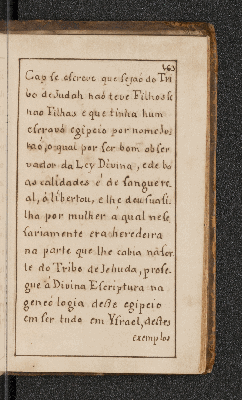 463
Cap se escreve que sesaō do Tri
bo de Judah naō teve Filhos se
naō Filhas e que tinha hum
escravo egipcio por nome
o qual por ser bom obser
vador da Ley Divina, e de bo
as calidades é de sangue re
al, ó libertou, e lhe deu sua fi
lha por mulher á qual nese
sariamente era heredeira
na parte que lhe cabia na sor
te do Tribo de Jehuda, prose
gue á Divina Escriptura na
geneó logia deste egipcio
em ser tudo em Ysrael, destes
exemplos